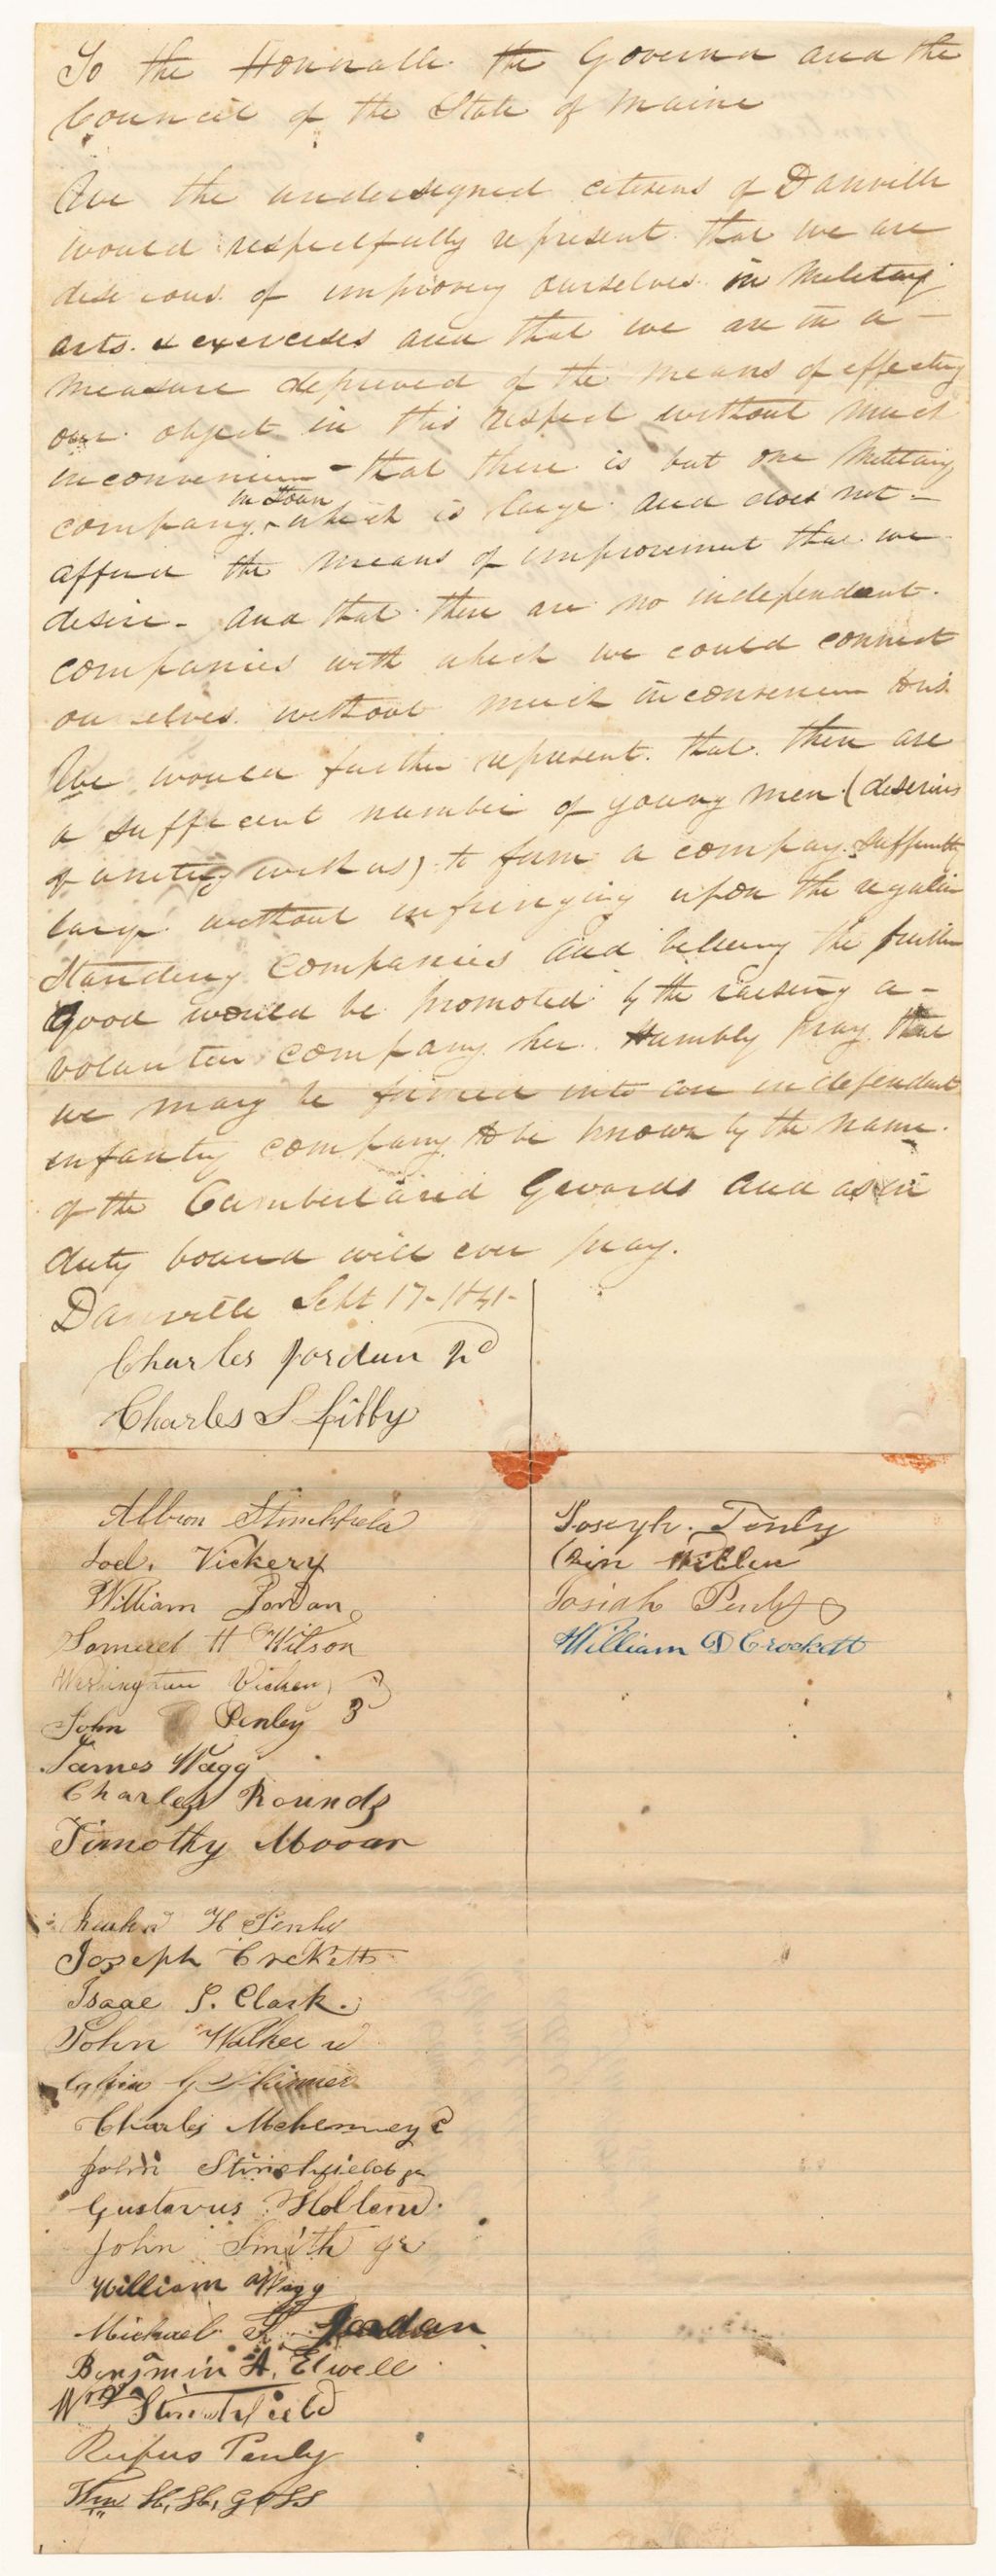 To the Honorable the Governor and the
Council of the State of Maine
We the undersigned citizens of Danville
would respectfully represent that we are
desirous of improving ourselves in Military
arts & exercises and that we are in a
measure deprived of the means of effecting
our object in this respect without much
inconvenience - that there is but one Military
in Town
company which is large and does not
afford the means of improvement that we
desire - and that there are no independent
companies with which we could connect
ourselves without much inconvenience
We would further represent that there are
a sufficient number of young men (desirous
of uniting with us) to form a company sufficiently
large without infringing upon the regular
standing companies and believing the further
good would be promoted by the raising a
volunteer company here Humbly pray that
we may be formed into an independent
infantry company to be known by the name
of the Cumberland Guards and as in
duty bound will ever pray.
Danville Sept 17 - 1841 -
Charles Jordan 2d
Charles S Libby
Albion Stinchfield
Joel Vickery
William Jordan
Samuel H Wilson
Washington Vickery
John Penley 3
James Wagg
Charles Rounds
Timothy Mooar
H Penley
Joseph Crckett
Isaac S. Clark.
John Walker
G Skinner
Charles Mckenney 2
John Stinchfield jr
Gustavus Holland
John Smith jr
William Wagg
Michael Jordan
Benjmin A. Elwell
Wm Stinchfield
Rufus Penly
Wm H. H. Goss
Joseph Penly
Josiah Penly
William D Crockett